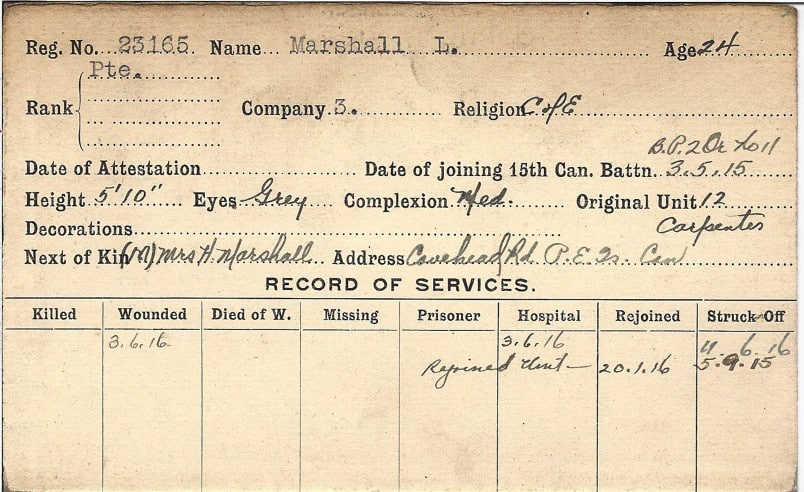 Reg. No. 23165 Name Marshall L. Age 24
Pte.
Rank Company 3. Religion C of E
B.P. 2 Or No 11
Date of Attestation Date of joining 15th Can. Battn. 3.5.15
Height 5'10" Eyes Grey Complexion Med. Original Unit 12
Decorations Carpenter
Next of Kin (M) Mrs H. Marshall Address Covehead Rd P.E.Is. Can
RECORD OF SERVICES.
Killed Wounded Died of W. Missing Prisoner Hospital Rejoined Struck Off
3.6.16 3.6.16 11.6.16
Rejoined Unit — 20.1.16 5.9.15